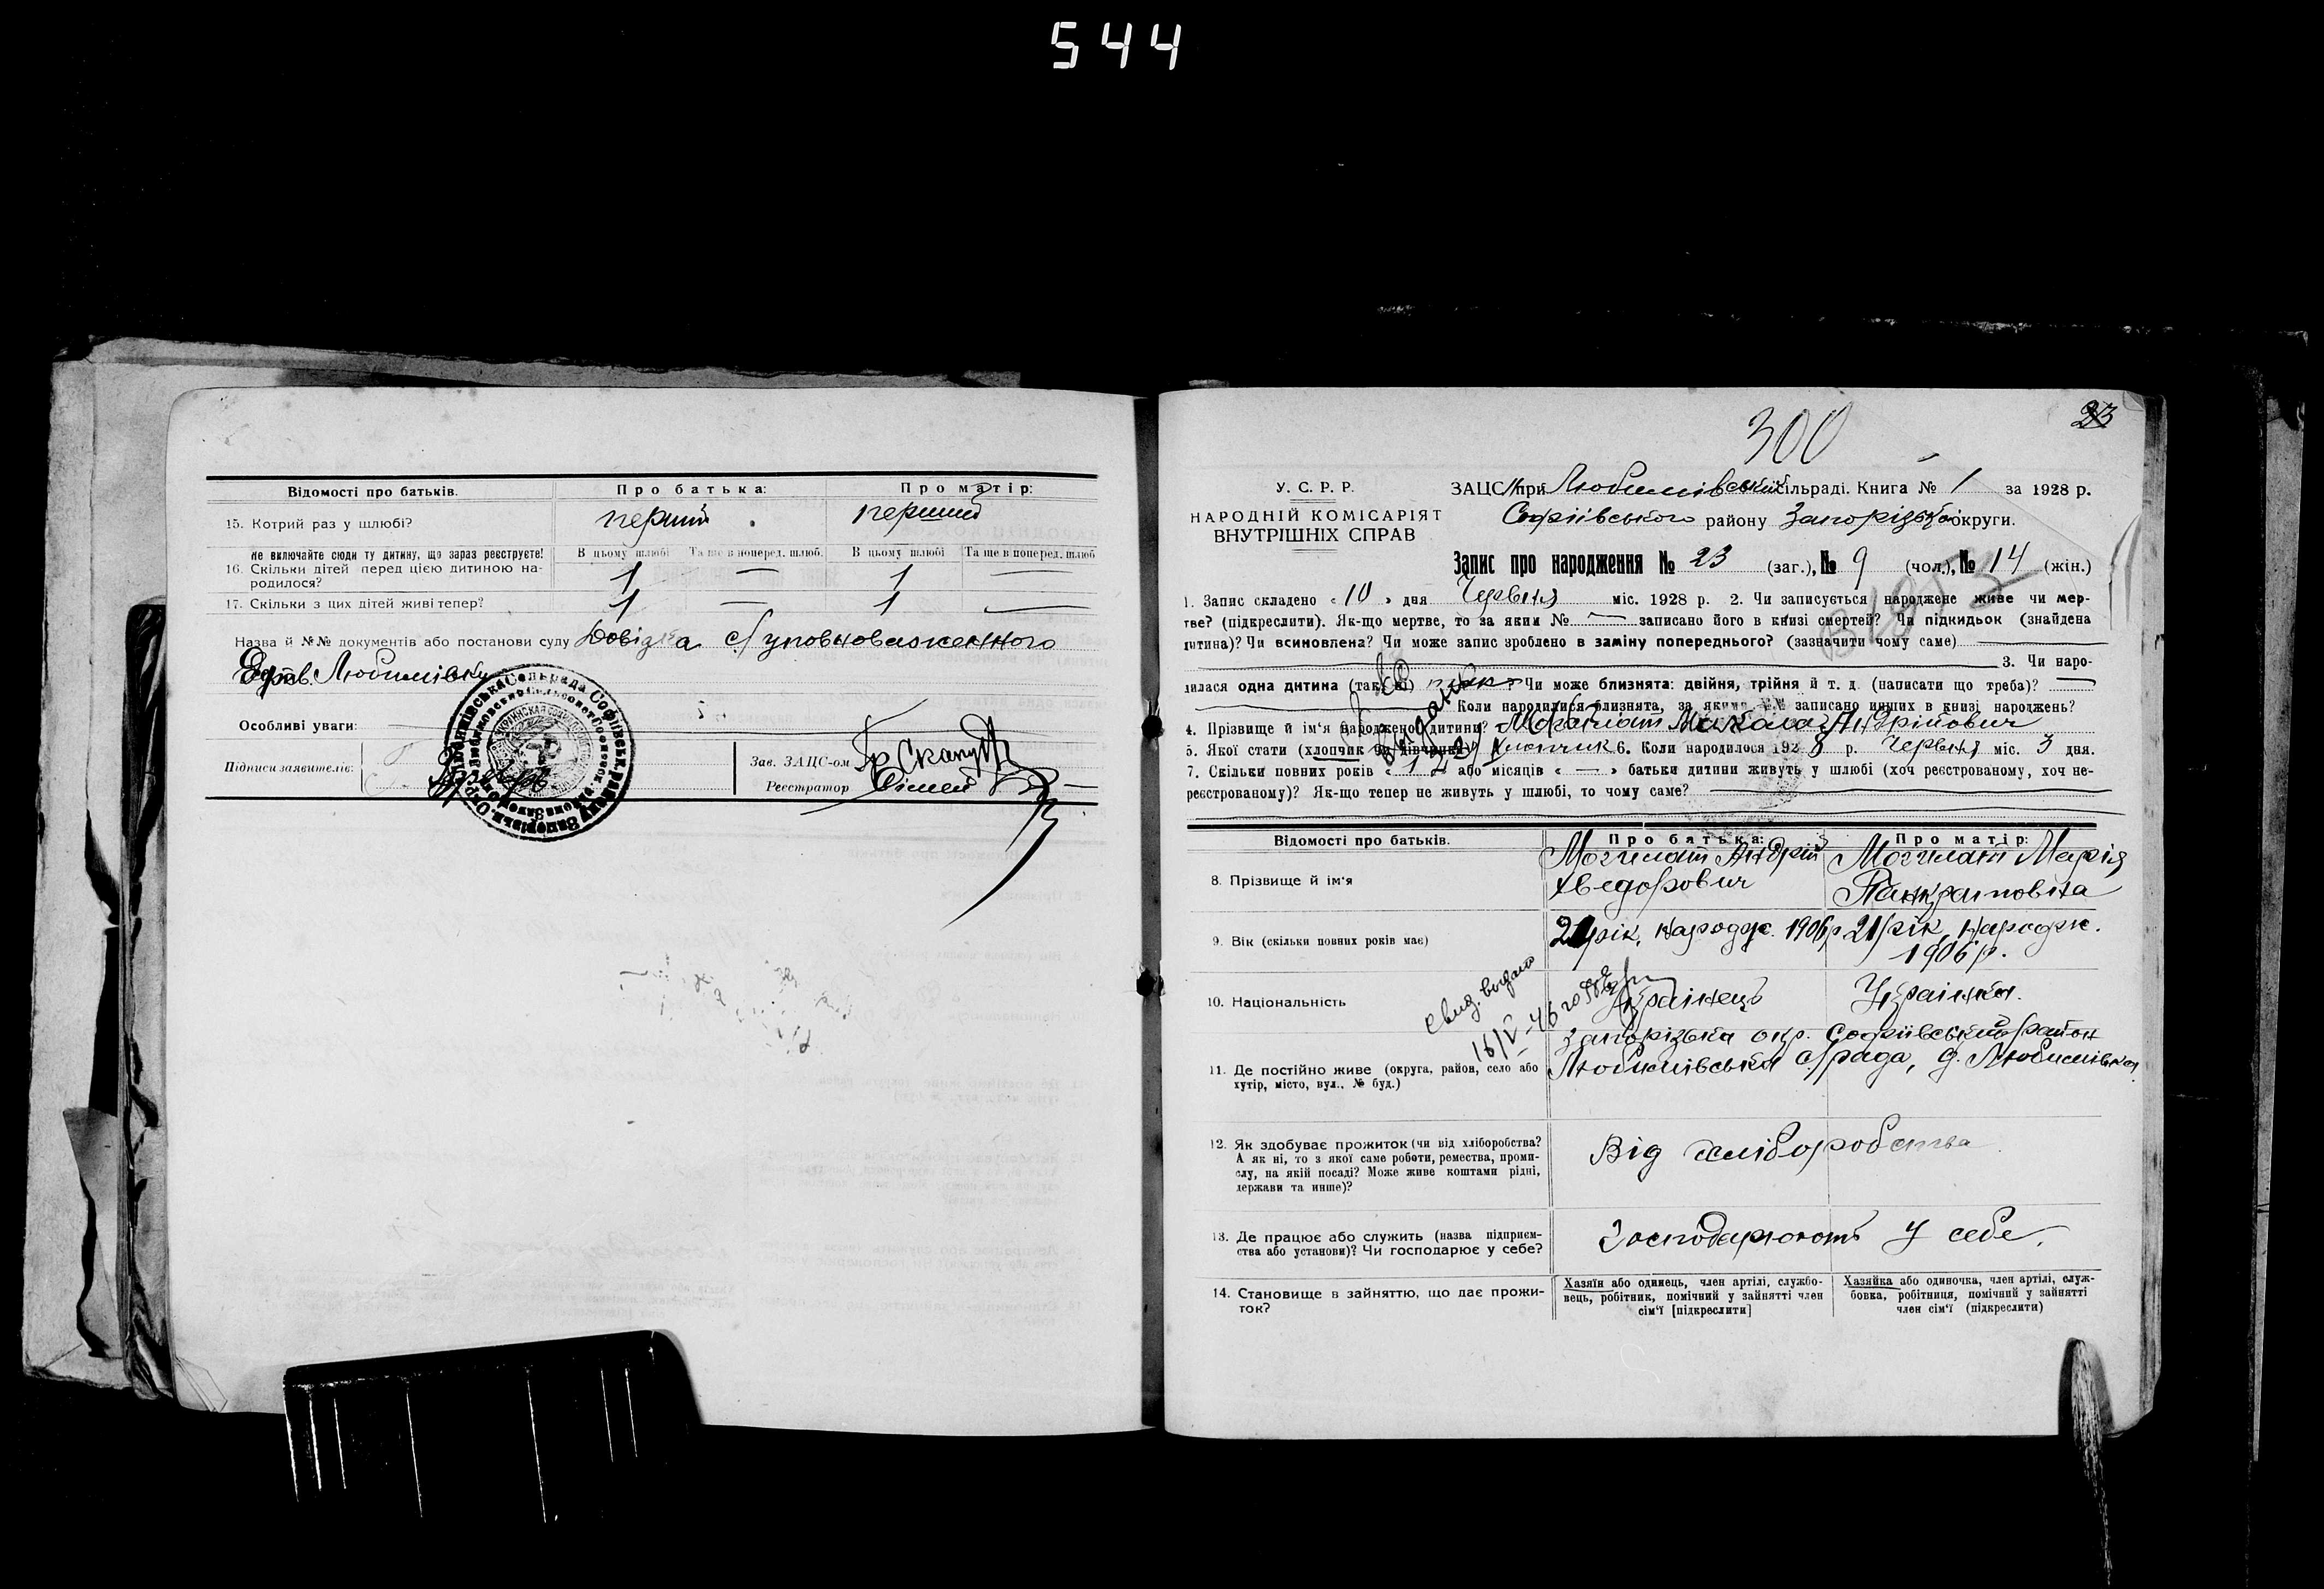 544
Відомості про батьків. Про батька: Про матір:
15. Котрий раз у шлюбі? перший перший
Не включайте сюди ту дитину, що зараз реєструєте! В цьому шлюбі Та ще в поперед. шлюб. В цьому шлюбі Та ще в поперед. шлюб
16. Скільки дітей перед цією дитиною на- 1 — 1 —
родилося?
17. Скільки з цих дітей живі тепер? 1 — 1 —
Назва й №№ документів або постанови суду Довідка с/уповноваженного
Любимівки
Особливі уваги:
Підписи заявителів:
Зав. ЗАЦС-ом
Реєстратор
300
23
У. С. Р. Р.
НАРОДНІЙ КОМІСАРІЯТ
ВНУТРІШНІХ СПРАВ
ЗАЦС при Любимівській сільраді. Книга № 1 за 1928 р.
Софіївського району Запорізької округи.
Запис про народження № 23 (заг.), № 9 (чол.), № 14 (жін.)
1. Запис складено « 10 » дня Червня міс. 1928 р. 2. Чи записується народжене живе чи мер-
тве? (підкреслити). Як-що мертве, то за яким № — записано його в книзі смертей? Чи підкидьок (знайдена
дитина)? Чи всиновлена? Чи може запис зроблено в заміну попереднього? (зазначити чому саме)
3. Чи наро-
дилася одна дитина (так, ні) так ? Чи може близнята: двійня, трійня й т. д. (написати що треба)? —
Коли народилися близнята, за якими №№ записано инших в книзі народжень?
4. Прізвище й ім'я народженої дитини? Могилат Микола Андрійович
5. Якої стати (хлопчик чи дівчинка) Хлопчик 6. Коли народилося 1928 р. Червня міс. 3 дня.
7. Скільки повних років « » або місяців « — » батьки дитини живуть у шлюбі (хоч реєстрованому, хоч не-
реєстрованому)? Як-що тепер не живуть у шлюбі, то чому саме?
Відомості про батьків. Про батька: Про матір:
8. Прізвище й ім'я Могилат Андрій Хведорович Могилат Марія Панкратовна
9. Вік (скільки повних років має) 21 рік, народж. 1906 р 21 рік, народж. 1906 р.
свид. выдано
10. Національність Українець Українка.
11. Де постійно живе (округа, район, село або
хутір, місто, вул., № буд.)
Запорізька окр. Софіївський район
Любимівська с/рада, д. Любимівка
12. Як здобуває прожиток (чи від хліборобства?
А як ні, то з якої саме роботи, ремества, проми-
слу, на якій посаді? Може живе коштами рідні,
держави та инше)?
Від хліборобства
13. Де працює або служить (назва підприєм-
ства або установи)? Чи господарює у себе?
Господарюють у себе.
14. Становище в зайняттю, що дає прожи-
ток?
Хазяїн або одинець, член артілі, службо-
вець, робітник, помічний у зайнятті член
сім'ї [підкреслити]
Хазяйка або одиночка, член артілі, служ-
бовка, робітниця, помічний у зайнятті
член сім'ї (підкреслити)